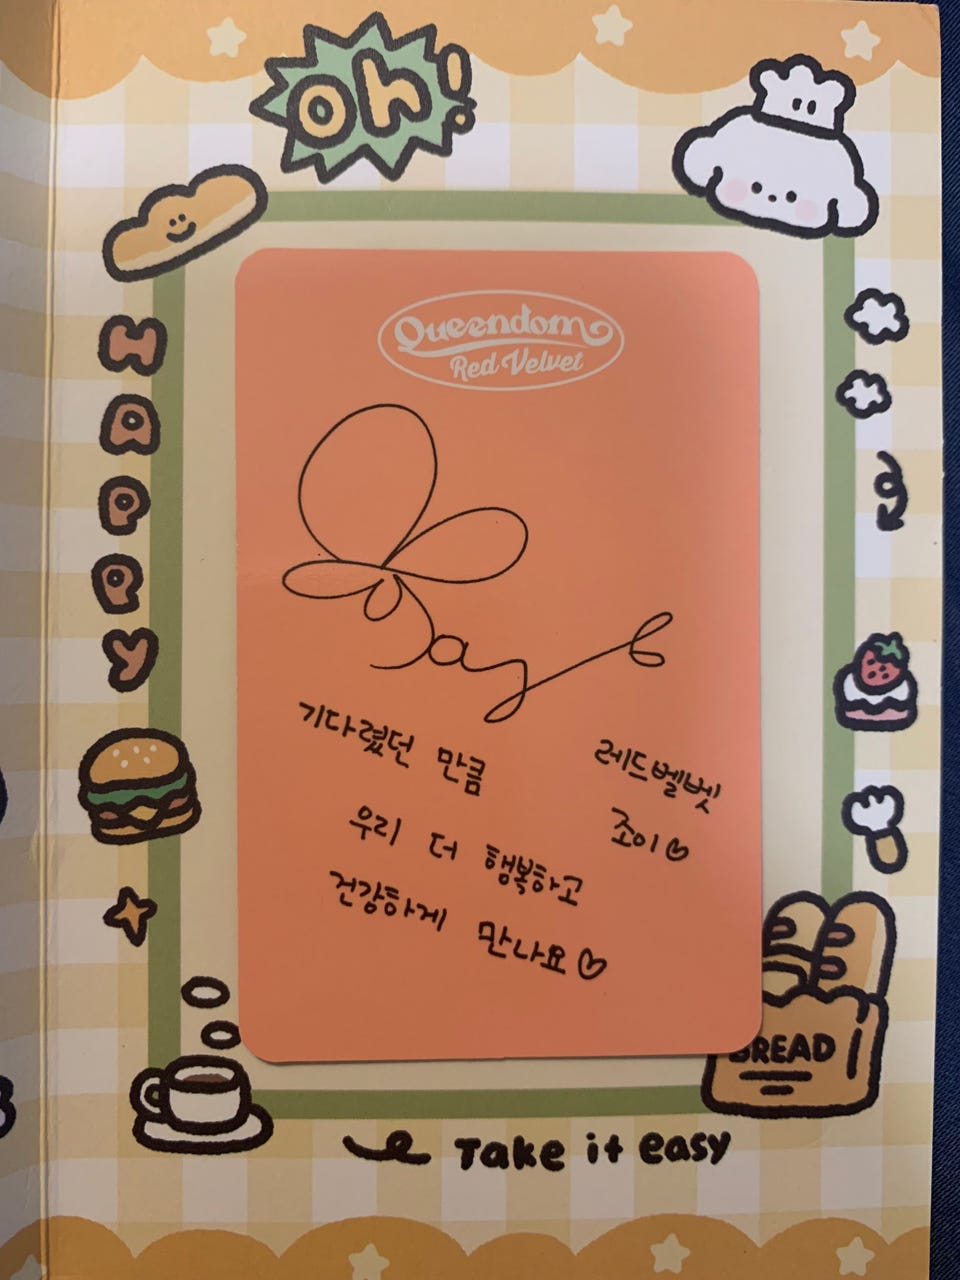 oh!
HAPPY
Queendom
Red Velvet
Joy
기다렸던 만큼
우리 더 행복하고
건강하게 만나요♡
레드벨벳
조이♡
BREAD
Take it easy